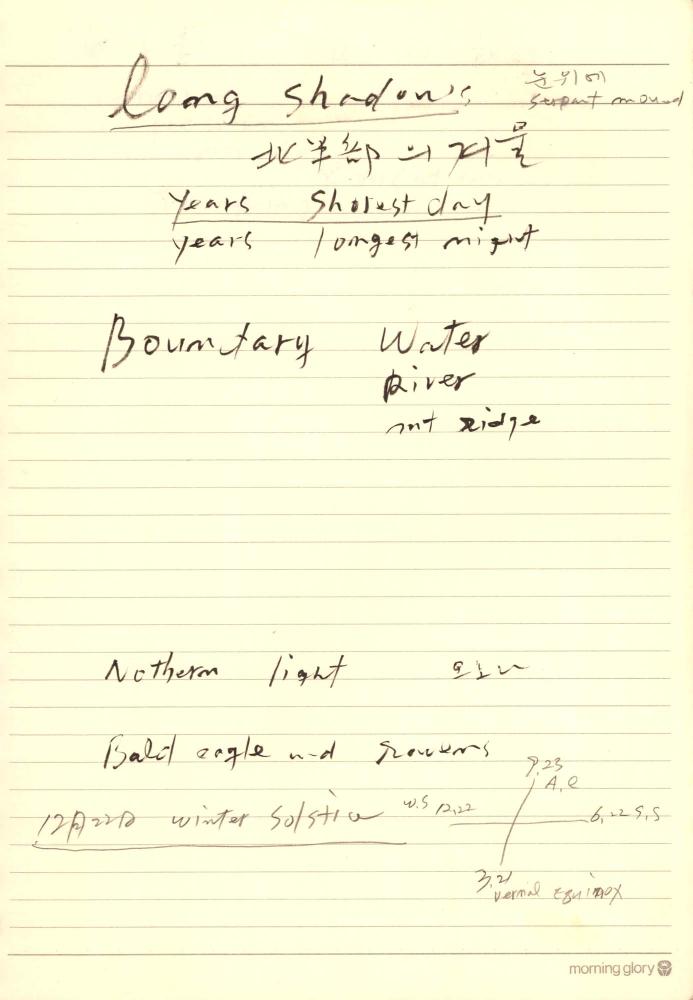 long shadows
눈위에
serpant mound
北半部의 겨울
years shorest day
years longest night
Bountary Water
River
mt ridge
Nothern light 오로라
Bald eagle and
12月22日 winter Solstice
W.S 12,22
9.23
A.e
6,22 S,S
3,21
vernal Equinox
morning glory